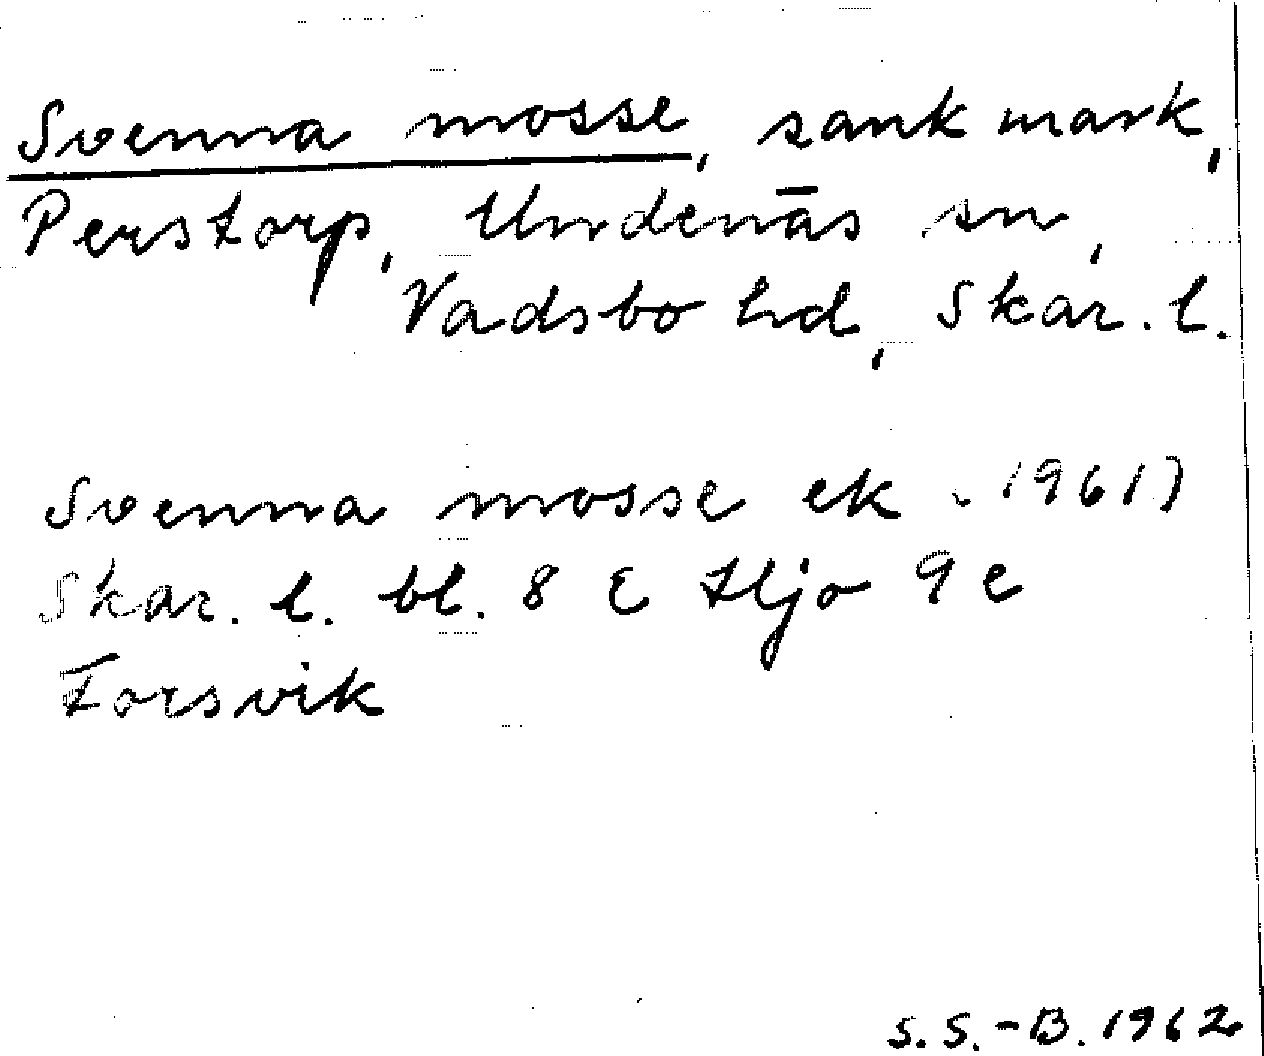 Svenna mosse, sank mark,
Perstorp, Undenäs sn,
Vadsbo hd, Skar. l.
Svenna mosse ek (1961)
Skar. l. bl. 8 E Hjo 9 e
Forsvik
S. S.-B. 1962